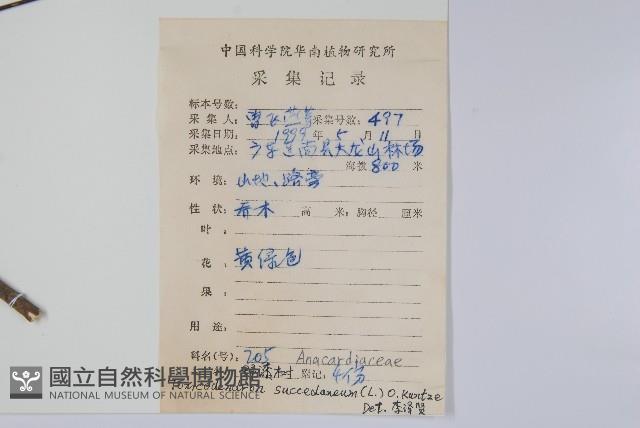 中国科学院华南植物研究所
采集记录
标本号数:
采集人: 曾飞燕等 采集号数: 497
采集日期: 1999 年 5 月 11 日
采集地点: 广东连南县大龙山林场
海拨 800 米
环境: 山地、路旁
性状: 乔木 高 米; 胸径 厘米
叶:
花: 黄绿色
果:
用途:
科名(号): 205 Anacardiaceae
漆树 附记: 4份
Toxicodendron succedaneum (L.) O. Kuntze
Det. 李泽贤
國立自然科學博物館
NATIONAL MUSEUM OF NATURAL SCIENCE